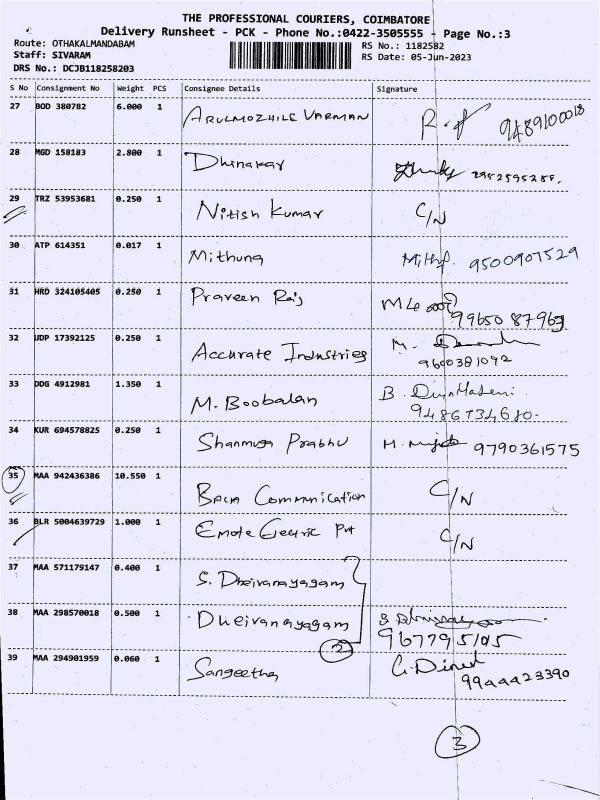 THE PROFESSIONAL COURIERS, COIMBATORE
Delivery Runsheet - PCK - Phone No.:0422-3505555 - Page No.:3
Route: OTHAKALMANDABAM RS No.: 1182582
Staff: SIVARAM RS Date: 05-Jun-2023
DRS No.: DCJB118258203
S No Consignment No Weight PCS Consignee Details Signature
27 BOD 380782 6.000 1 ARULMOZHILE VARMAN 9489100018
28 MGD 158183 2.800 1 Dhinakar
29 TRZ 53953681 0.250 1 Nitish Kumar C/N
30 ATP 614351 0.017 1 Mithuna 9500907529
31 HRD 324105405 0.250 1 Praveen Raj 9965087963
32 UDP 17392125 0.250 1 Accurate Industries M. 9600381092
33 DDG 4912981 1.350 1 M. Boobalan B. 9486734680.
34 KUR 694578825 0.250 1 Shanmuga Prabhu M. 9790361575
35 MAA 942436386 10.550 1 Communication C/N
36 BLR 5004639729 1.000 1 Emote Electric Pvt C/N
37 MAA 571179147 0.400 1 S. Dheivanayagam
38 MAA 298570018 0.500 1 Dheivanayagam
2
39 MAA 294901959 0.060 1 Sangeetha G. Dinesh 9944423390
3